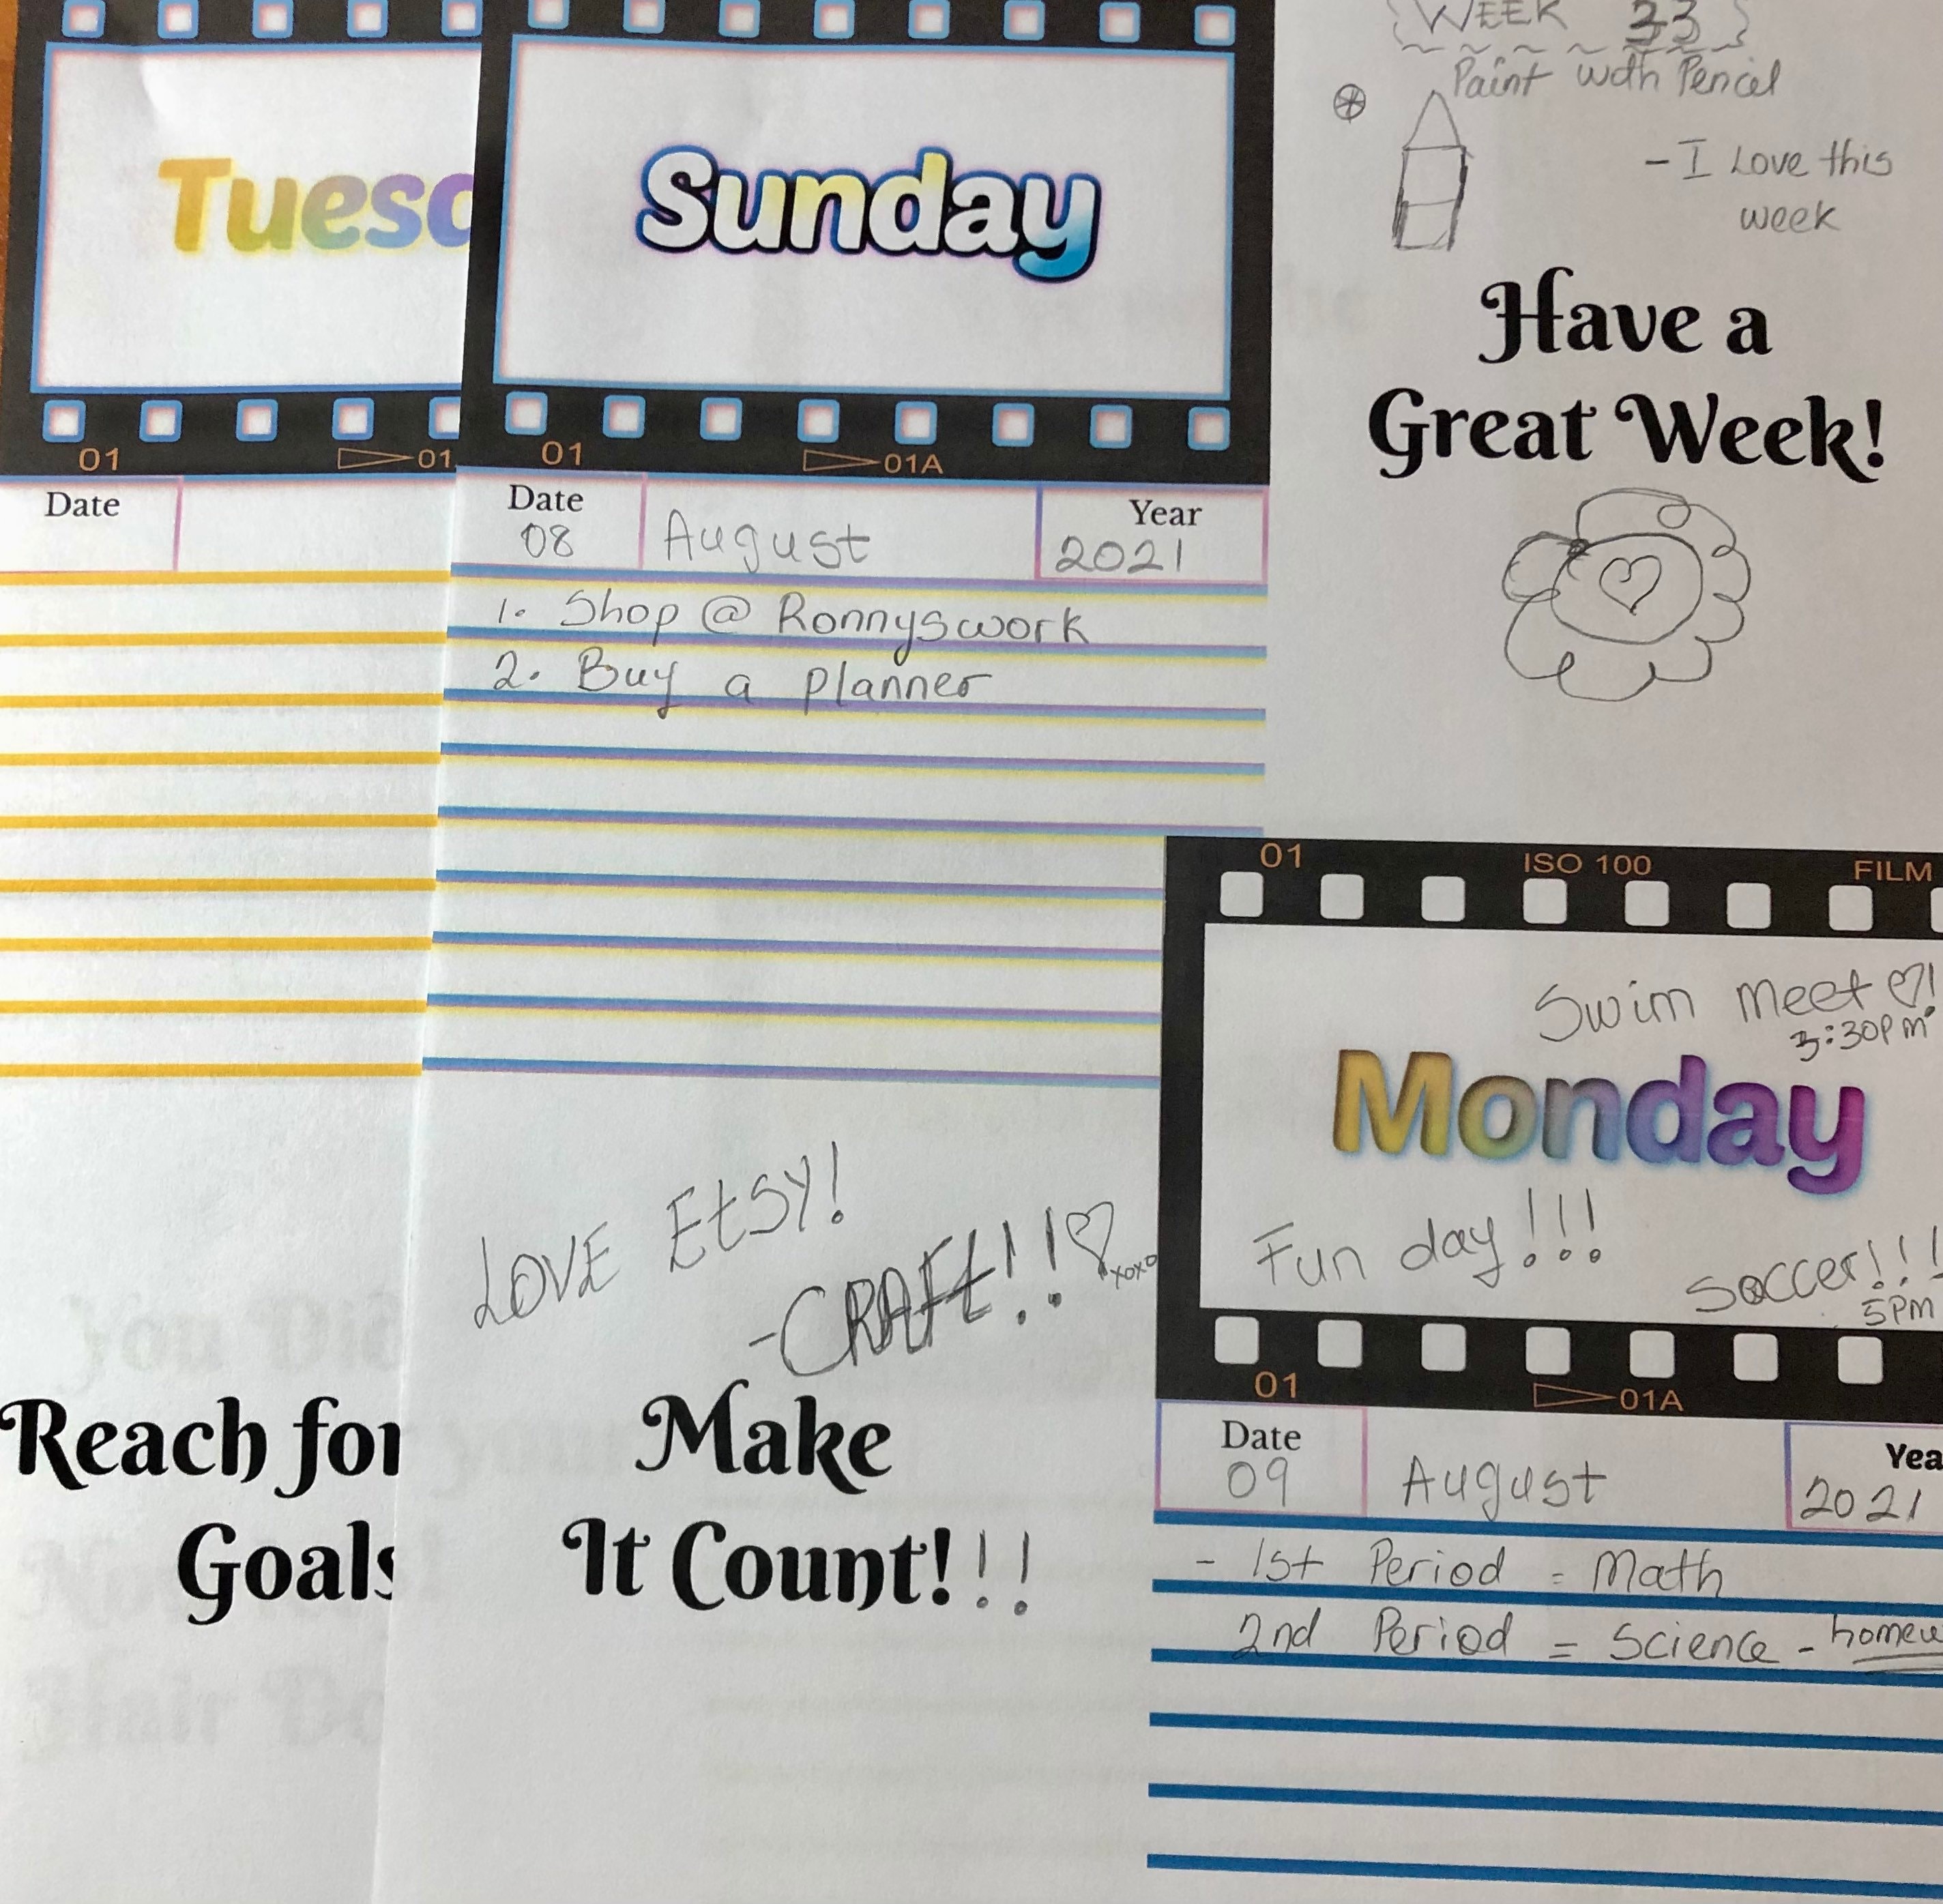 Tuesd
01
01
Date
Reach for
Goals
Sunday
01
01A
Date
08
August
Year
2021
1. Shop @ Ronnyswork
2. Buy a planner
LOVE Etsy!
-CRAFt!!
xoxo
Make
It Count!!!
WEEK 33
Paint with Pencil
- I Love this
week
Have a
Great Week!
01
ISO 100
FILM
Swim Meet !
3:30pm
Monday
Fun day!!!
Soccer!!!
5PM
01
01A
Date
09
August
Yea
2021
- 1st Period = Math
2nd Period = Science - homew